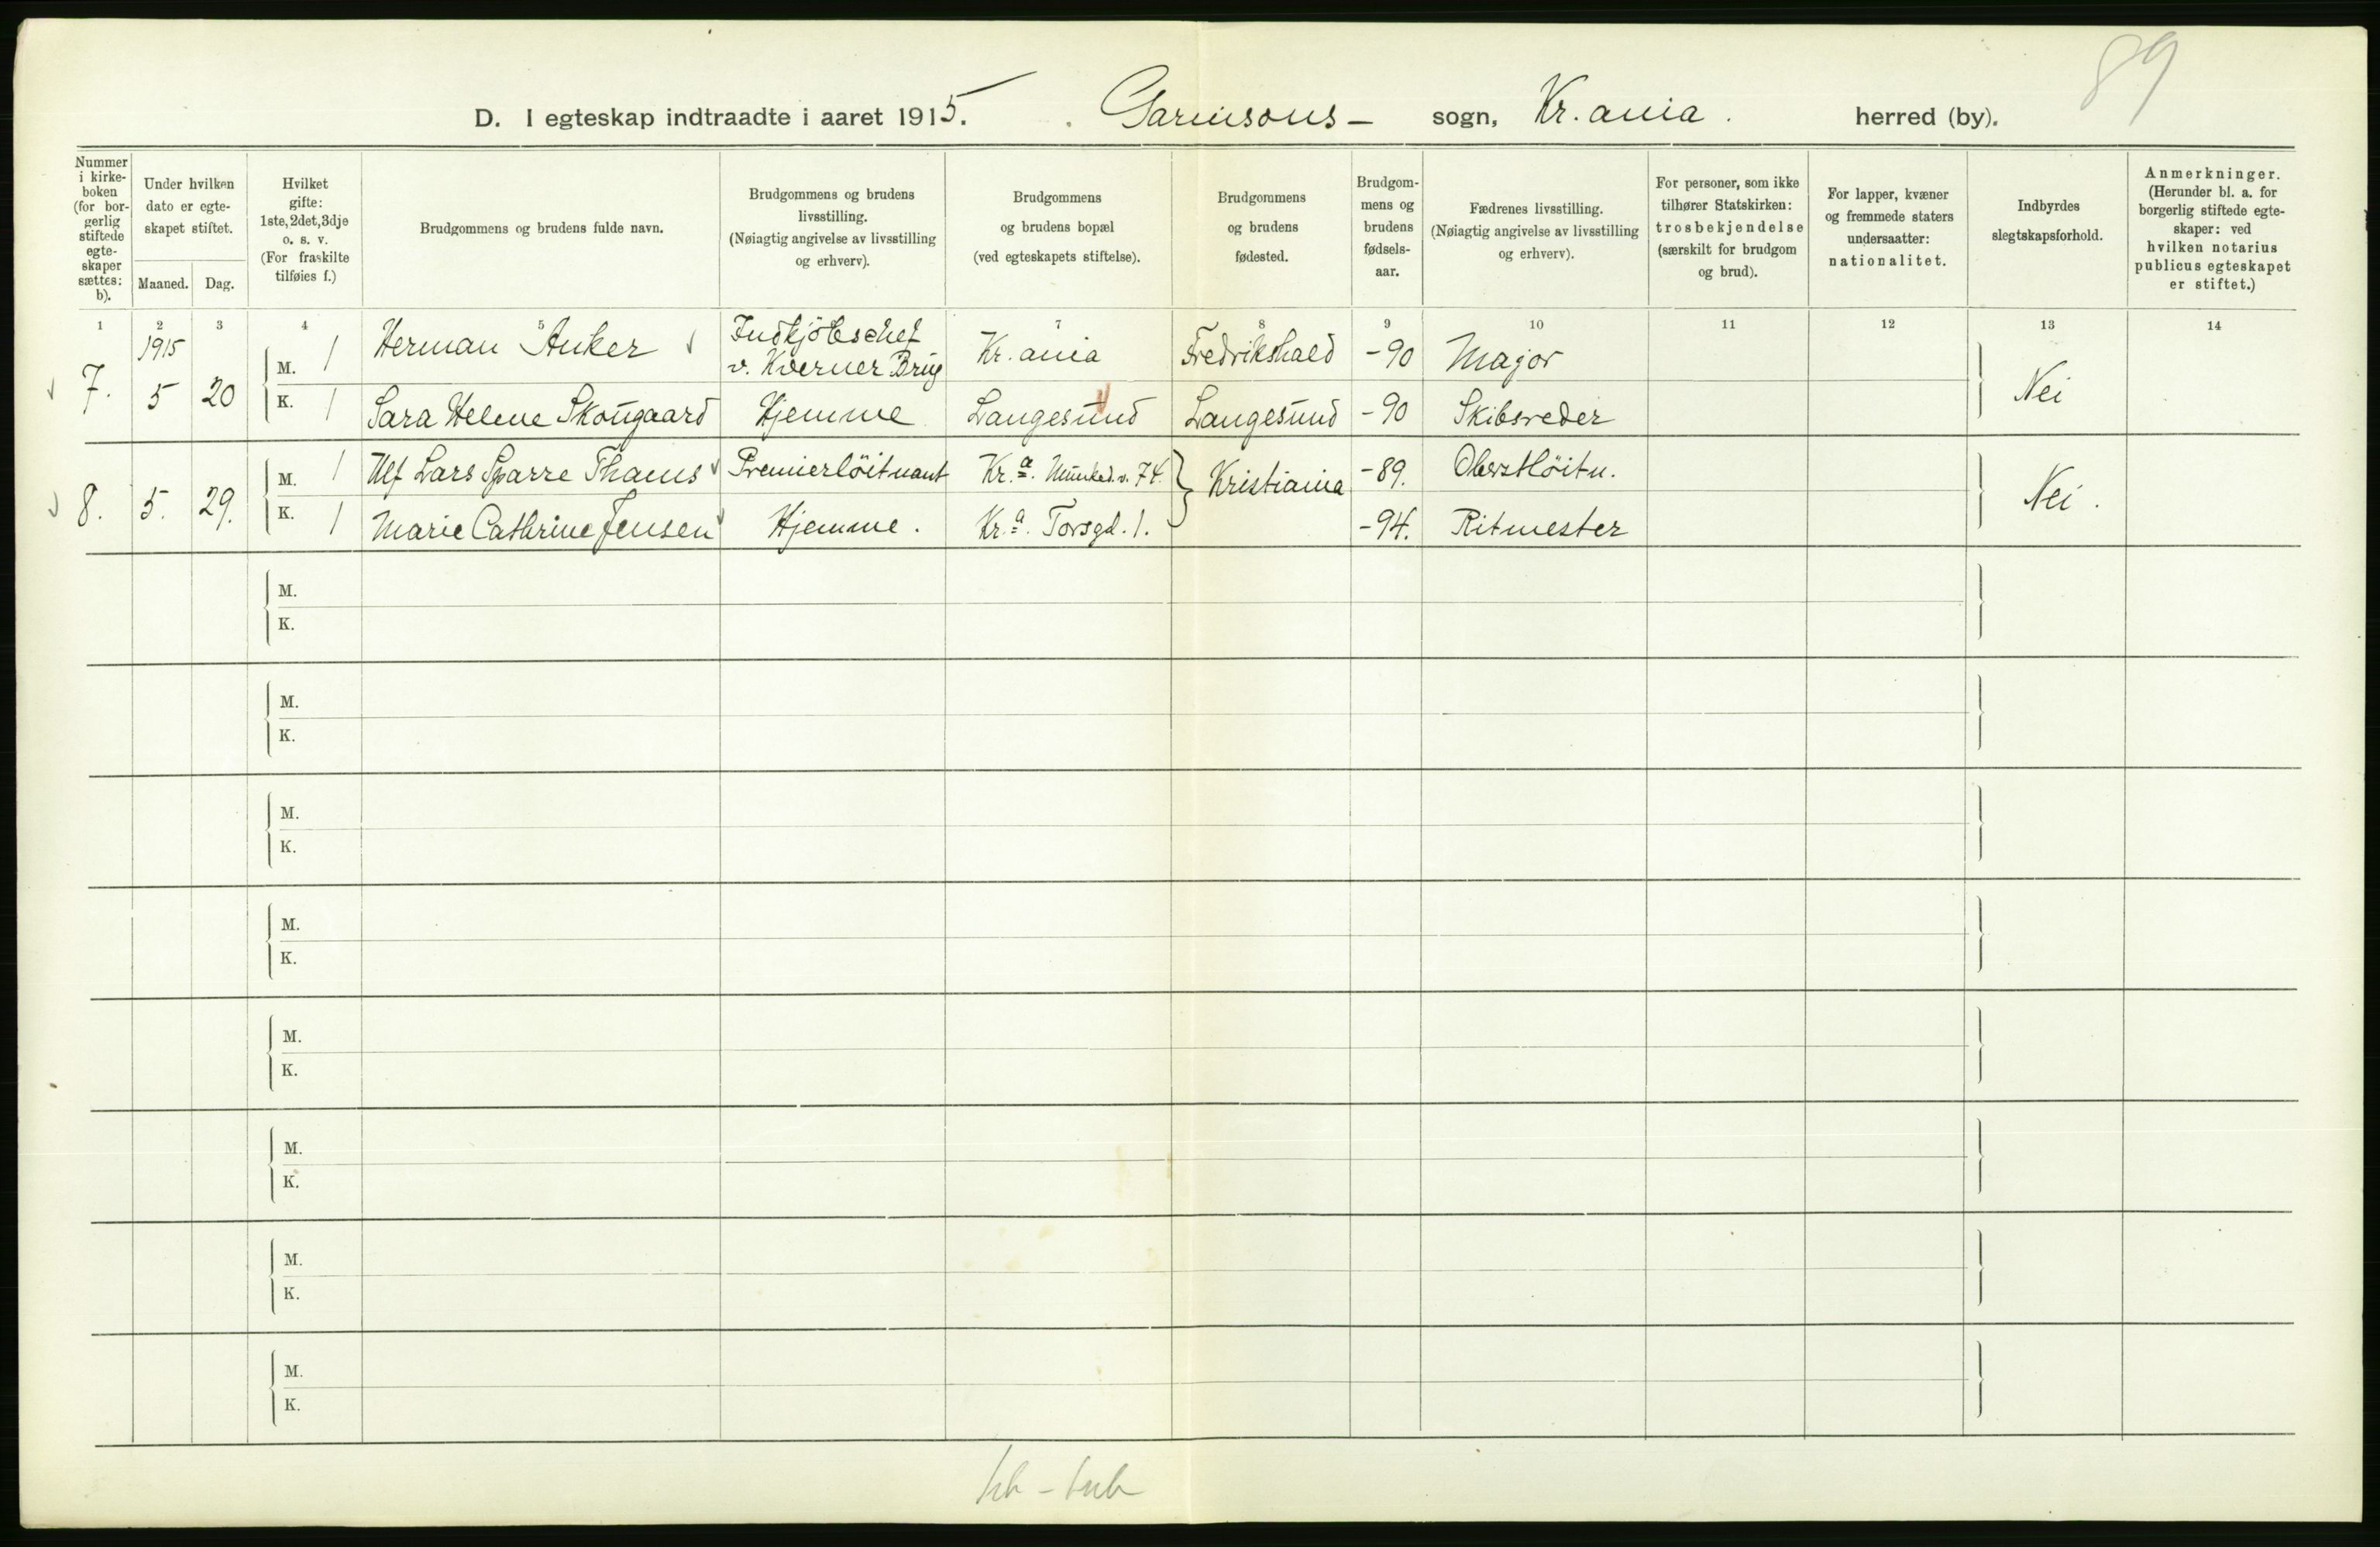 89
D. I egteskap indtraadte i aaret 1915. Garnisons- sogn, Kr.ania. herred (by).
Nummer i kirkeboken (for borgerlig stiftede egteskaper sættes: b).
Under hvilken dato er egteskapet stiftet.
Maaned. Dag.
Hvilket gifte: 1ste, 2det, 3dje o. s. v. (For fraskilte tilføies f.)
Brudgommens og brudens fulde navn.
Brudgommens og brudens livsstilling. (Nøiagtig angivelse av livsstilling og erhverv).
Brudgommens og brudens bopæl (ved egteskapets stiftelse).
Brudgommens og brudens fødested.
Brudgommens og brudens fødselsaar.
Fædrenes livsstilling. (Nøiagtig angivelse av livsstilling og erhverv).
For personer, som ikke tilhører Statskirken: trosbekjendelse (særskilt for brudgom og brud).
For lapper, kvæner og fremmede staters undersaatter: nationalitet.
Indbyrdes slegtskapsforhold.
Anmerkninger. (Herunder bl. a. for borgerlig stiftede egteskaper: ved hvilken notarius publicus egteskapet er stiftet.)
1 2 3 4 5 6 7 8 9 10 11 12 13 14
1915
7. 5 20 M. 1 Herman Anker Indkjöbschef v. Kværner Brug Kr.ania Fredrikshald -90 Major Nei
K. 1 Sara Helene Skougaard Hjemme Langesund Langesund -90 Skibsreder
8. 5. 29. M. 1 Ulf Lars Sparre Thams Premierlöitnant Kr.a. Munked.v. 74. Kristiania -89. Oberstlöitn. Nei.
K. 1 Marie Cathrine Jensen Hjemme. Kr.a. Torsgd. 1. -94. Ritmester
M.
K.
M.
K.
M.
K.
M.
K.
M.
K.
M.
K.
M.
K.
M.
K.